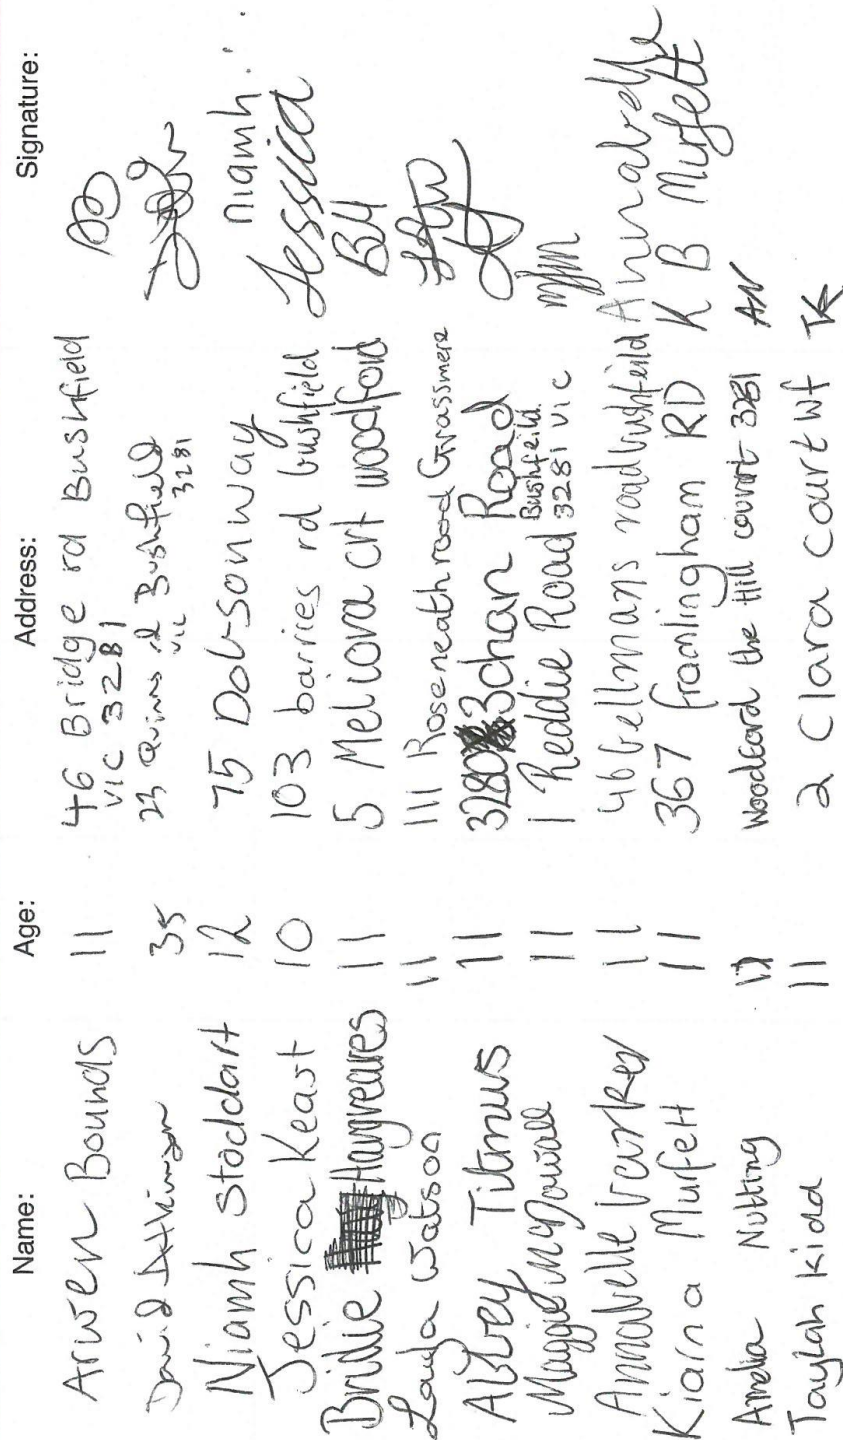 Name: Age: Address: Signature:
Arwen Bounds 11 46 Bridge rd Bushfield
VIC 3281
David Atkinson 35 23 Quinns rd Bushfield
VIC 3281
Niamh Stoddart 12 75 Dobson way niamh...
Jessica Keast 10 103 barries rd bushfield Jessica
Bridie Hargreaves 11 5 Meliora crt woodford BH
Layla Watson 11 111 Roseneath road Grassmere
Abbey Titmus 11 3280 3chan Road
Maggie McDowall 11 1 Reddie Road Bushfeild
3281 vic mfm
Annabelle 11 46 bellmans road bushfeild Annabelle
Kiarna Murfett 11 367 framlingham RD K B Murfett
Amelia Nutting Woodford the Hill courrt 3281 AN
Taylah Kidd 11 2 Clara court wf TK